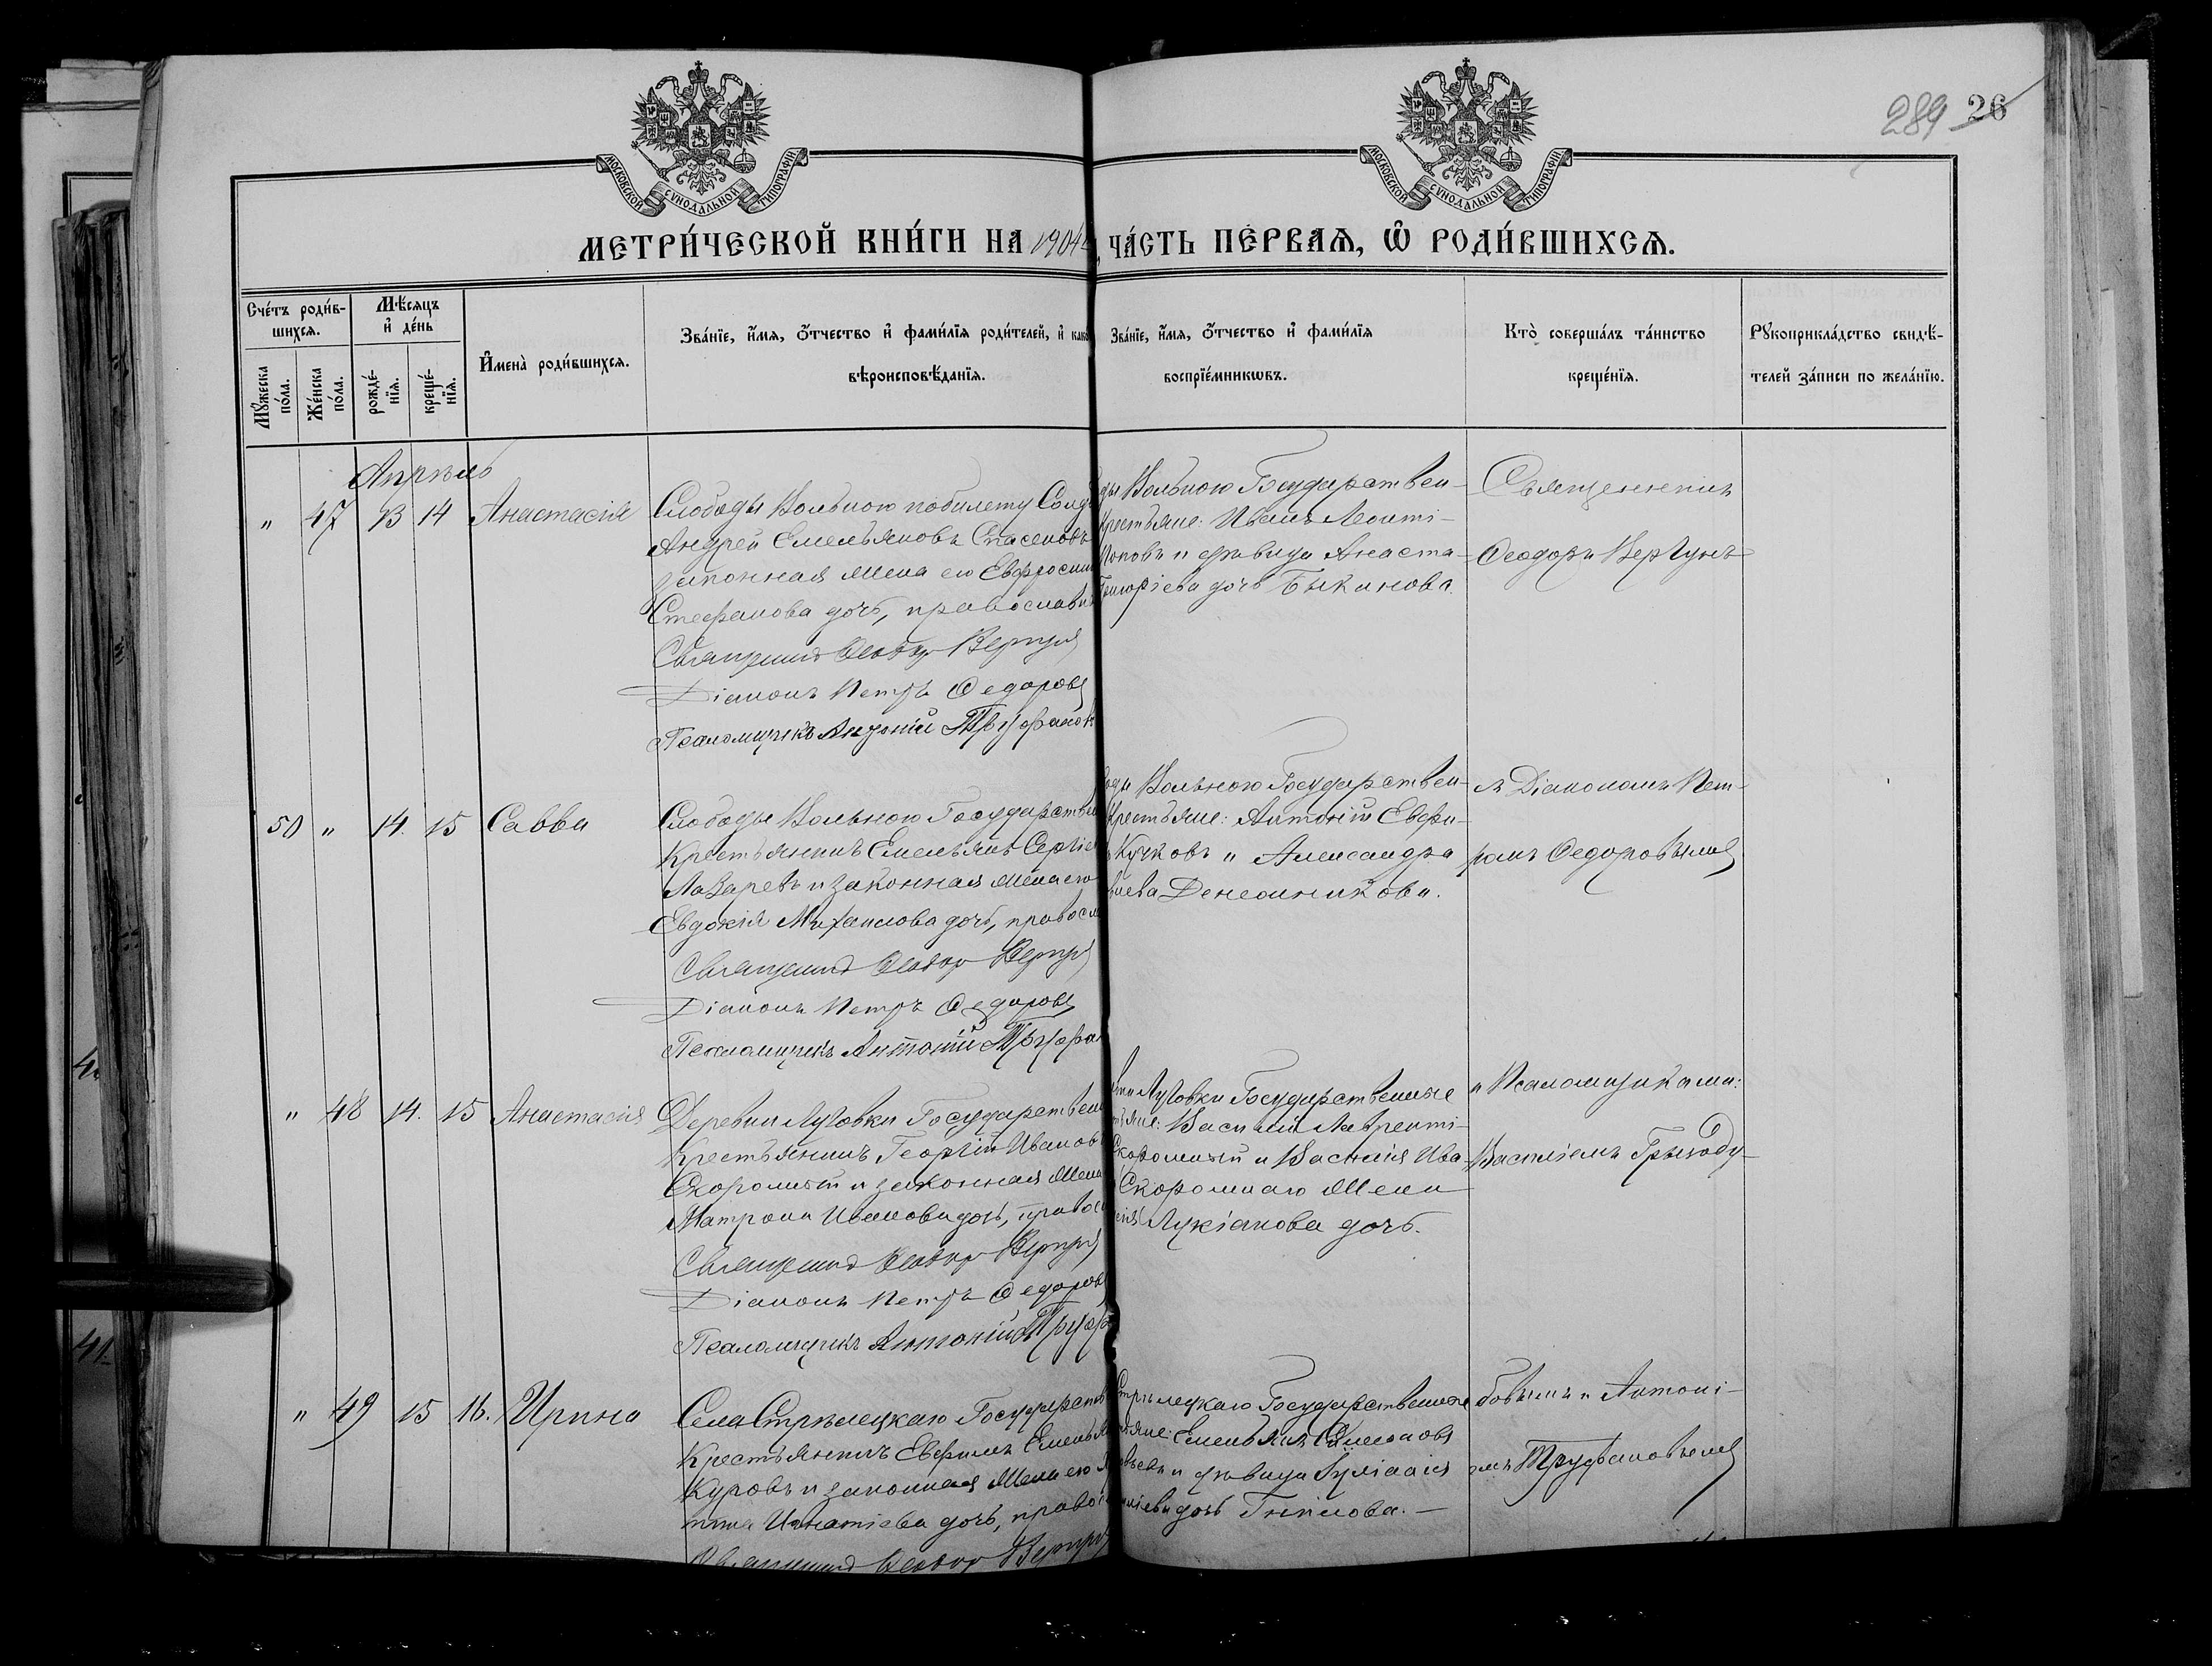 МОСКОВСКОЙ СУНОДАЛЬНОЙ ТИПОГРАФІИ
МОСКОВСКОЙ СУНОДАЛЬНОЙ ТИПОГРАФІИ
289 26
МЕТРИ́ЧЕСКОЙ КНИ́ГИ НА 1904 ЧА́СТЬ ПЕ́РВАѦ, Ѿ РОДИ́ВШИХСѦ.
Сче́тъ роди́в-
шихсѧ.
Мꙋ́жеска по́ла.
Же́нска по́ла.
Мѣ́сѧцъ
и҆ де́нь
рожде́-
нїѧ.
креще́-
нїѧ.
И҆мена̀ роди́вшихсѧ.
Зва́нїе, и҆́мѧ, ѻ҆́тчество и҆ фами́лїѧ роди́телей, и҆ како
вѣроисповѣ́данїѧ.
Зва́нїе, и҆́мѧ, ѻ҆́тчество и҆ фами́лїѧ
воспрїе́мникѡвъ.
Кто̀ соверша́лъ та́инство
креще́нїѧ.
Рꙋкоприкла́дство свидѣ́-
телей за́писи по жела́нїю.
Апрѣль
" 47 13 14 Анастасія
Слободы Вольною по билету Солд
Андрей Емельяновъ Спасеновъ
законная жена его Ефросин
Стефанова дочь, православн
Священникъ Ѳеодор Вергун
Діаконъ Петръ Ѳедоровъ
Псаломщикъ Антоній Труфанов
ды Вольною Государствен-
Крестьяне: Иванъ Леонті-
Поповъ и дѣвица Анаста-
Григоріева дочь Быканова.
Священникъ
Ѳеодоръ Вергунъ
50 " 14. 15 Савва
Слободы Вольною Государствен
Крестьянинъ Емельянъ Сергіе
Лазаревъ и законная жена его
Евдокія Михаилова дочь, правосл
Священникъ Ѳеодор Вергун
Діаконъ Петръ Ѳедоровъ
Псаломщикъ Антоній Труфан
оды Вольною Государствен-
Крестьяне: Антоній Евфи-
Кучковъ и Александра
съ Діакономъ Пет-
ромъ Ѳедоровымъ
" 48 14. 15 Анастасія
Деревни Луговки Государствен
Крестьянинъ Георгій Иванов
Скоромный и законная жена
Матрона Иванова дочь, правос
Священникъ Ѳеодор Вергун
Діаконъ Петръ Ѳедоров
Псаломщикъ Антоній Труф
Луговки Государственные
Василій Лавренті-
Скоромный и Василія Ива-
Скоромнаго жена
Лукіанова дочь.
и Псаломщиками:
Василіемъ Грызоду-
" 49 15 16. Ирина
Села Стрѣлецкаго Государств
Крестьянинъ Евфимъ Емелья
Куровъ и законная жена его
Игнатіева дочь, правос
Священникъ Ѳеодор Вергун
Стрѣлецкаго Государственные
Емельянъ Симеоновъ
и дѣвица Іуліанія
дочь
бовымъ и Антоні-
емъ Труфановымъ